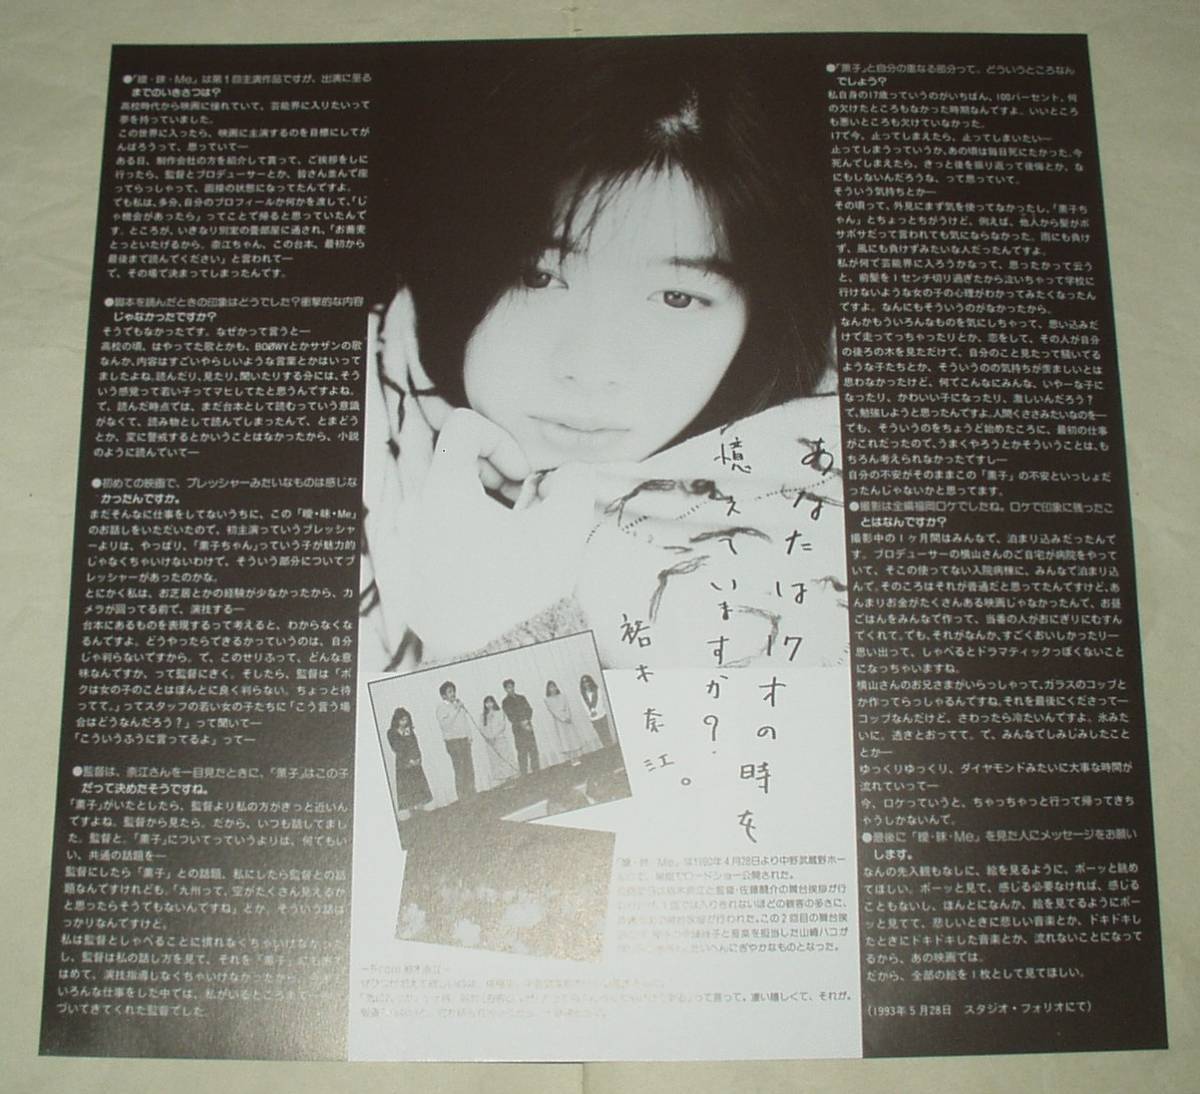 ●「瞹・昧・Me」は第1回主演作品ですが、出演に至る
までのいきさつは?
高校時代から映画に憧れていて、芸能界に入りたいって
夢を持っていました。
この世界に入ったら、映画に主演するのを目標にしてが
んばろうって、思っていて―
ある日、制作会社の方を紹介して貰って、ご挨拶をしに
行ったら、監督とプロデューサーとか、皆さん並んで座
ってらっしゃって、面接の状態になってたんですよ。
でも私は、多分、自分のプロフィールか何かを渡して、「じ
ゃ機会があったら」ってことで帰ると思っていたんで
す。ところが、いきなり別室の畳部屋に通され、「お蕎麦
とっといたげるから。奈江ちゃん、この台本、最初から
最後まで読んでください」と言われて―
で、その場で決まってしまったんです。
●脚本を読んだときの印象はどうでした?衝撃的な内容
じゃなかったですか?
そうでもなかったです。なぜかって言うと―
高校の頃、はやってた歌とかも、BOØWYとかサザンの歌
なんか、内容はすごいやらしいような言葉とかはいって
ましたよね。読んだり、見たり、聞いたりする分には、そう
いう感覚って若い子ってマヒしてたと思うんですよね。
で、読んだ時点では、まだ台本として読むっていう意識
がなくて、読み物として読んでしまったんで、とまどう
とか、変に警戒するとかいうことはなかったから、小説
のように読んでいて―
●初めての映画で、プレッシャーみたいなものは感じな
かったんですか。
まだそんなに仕事をしてないうちに、この「瞹・昧・Me」
のお話しをいただいたので、初主演っていうプレッシャ
ーよりは、やっぱり、「薫子ちゃん」っていう子が魅力的
じゃなくちゃいけないわけで、そういう部分についてプ
レッシャーがあったのかな。
とにかく私は、お芝居とかの経験が少なかったから、カ
メラが回ってる前で、演技する―
台本にあるものを表現するって考えると、わからなくな
るんですよ。どうやったらできるかっていうのは、自分
じゃ判らないですから。で、このせりふって、どんな意
味なんですか、って監督にきく。そしたら、監督は「ボ
クは女の子のことはほんとに良く判らない。ちょっと待
ってて。」ってスタッフの若い女の子たちに「こう言う場
合はどうなんだろう?」って聞いて―
「こういうふうに言ってるよ」って―
●監督は、奈江さんを一目見たときに、「薫子」はこの子
だって決めたそうですね。
「薫子」がいたとしたら、監督より私の方がきっと近いん
ですよね。監督から見たら。だから、いつも話してまし
た。監督と。「薫子」についてっていうよりは、何でもい
い、共通の話題を―
監督にしたら「薫子」との話題、私にしたら監督との話
題なんですけれども。「九州って、空がたくさん見えるか
と思ったらそうでもないんですね」とか、そういう話ば
っかりなんですけど。
私は監督としゃべることに慣れなくちゃいけなかった
し、監督は私の話し方を見て、それを「薫子」にも
はめて、演技指導しなくちゃいけなかったから、
いろんな仕事をした中では、私がいるところまで―
づいてきてくれた監督でした。
あなたは17才の時を
憶えていますか?
裕木奈江。
「瞹・昧・Me」は1990年4月28日より中野武蔵野ホー
ロードショー公開された。
裕木奈江と監督・佐藤闘介の舞台挨拶が行
入りきれないほどの観客の多さに、
行われた。この2回目の舞台挨
音楽を担当した山崎ハコが
たいへんにぎやかなものとなった。
って言って。凄い嬉しくて、それが。
●「薫子」と自分の重なる部分って。どういうところなん
でしょう?
私自身の17歳っていうのがいちばん、100パーセント、何
の欠けたところもなかった時期なんですよ。いいところ
も悪いところも欠けていなかった。
17で今、止ってしまえたら、止ってしまいたい―
止ってしまうっていうか、あの頃は毎日死にたかった。今
死んでしまえたら、きっと後を振り返って後悔とか、な
にもしないんだろうな、って思っていて。
そういう気持ちとか―
その頃って、外見にまず気を使ってなかったし、「薫子ち
ゃん」とちょっとちがうけど、例えば、他人から髪がボ
サボサだって言われても気にならなかった。雨にも負け
ず、風にも負けずみたいな人だったんですよ。
私が何で芸能界に入ろうかなって、思ったかって云う
と、前髪を1センチ切り過ぎたから泣いちゃって学校に
行けないような女の子の心理がわかってみたくなったん
ですよ。なんにもそういうのがなかったから。
なんかもういろんなものを気にしちゃって、思い込みだ
けで走ってっちゃったりとか、恋をして、その人が自分
の後ろの木を見ただけで、自分のこと見たって騒いでる
ような子たちとか、そういうのの気持ちが羨ましいとは
思わなかったけど、何でこんなにみんな、いやーな子に
なったり、かわいい子になったり、激しいんだろう?
で、勉強しようと思ったんですよ。人間くささみたいなのを―
でも、そういうのをちょうど始めたころに、最初の仕事
がこれだったので、うまくやろうとかそういうことは、も
ちろん考えられなかったですし―
自分の不安がそのままこの「薫子」の不安といっしょだ
ったんじゃないかと思ってます。
●撮影は全編福岡ロケでしたね。ロケで印象に残ったこ
とはなんですか?
撮影中の1ヶ月間はみんなで、泊まり込みだったんで
す。プロデューサーの横山さんのご自宅が病院をやって
いて、そこの使ってない入院病棟に、みんなで泊まり込
んで。そのころはそれが普通だと思ってたんですけど、あ
んまりお金がたくさんある映画じゃなかったんで、お昼
ごはんをみんなで作って、当番の人がおにぎりにむすん
でくれて。でも、それがなんか、すごくおいしかったりー
思い出って、しゃべるとドラマティックっぽくないこと
になっちゃいますね。
横山さんのお兄さまがいらっしゃって、ガラスのコップと
か作ってらっしゃるんですね。それを最後にくださって―
コップなんだけど、さわったら冷たいんですよ。氷みた
いに。透きとおってて。で、みんなでしみじみしたこと
とか―
ゆっくりゆっくり、ダイヤモンドみたいに大事な時間が
流れていって―
今、ロケっていうと、ちゃっちゃっと行って帰ってきち
ゃうしかないんで。
●最後に「瞹・昧・Me」を見た人にメッセージをお願い
します。
なんの先入観もなしに、絵を見るように、ボーッと眺め
てほしい。ボーッと見て、感じる必要なければ、感じる
こともないし、ほんとになんか、絵を見てるようにボー
ッと見てて、悲しいときに悲しい音楽とか、ドキドキし
たときにドキドキした音楽とか、流れないことになって
るから、あの映画では。
だから、全部の絵を1枚として見てほしい。
(1993年5月28日 スタジオ・フォリオにて)